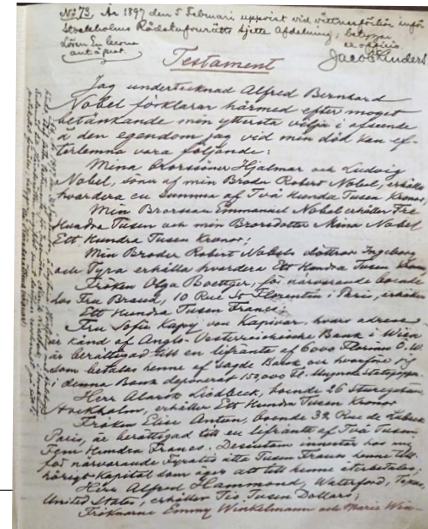 No 73. År 1897 den 5 Februari, uppvist vid vittnesförhör inför
Stockholms Rådstufvurätts sjette Afdelning; betygar
Lösen En krona
ex officio
Jacob Kinders
Testament
Jag undertecknad Alfred Bernhard
Nobel förklarar härmed efter moget
betänkande min yttersta vilja i afseende
å den egendom jag vid min död kan ef-
terlemna vara följande:
Mina Brorsöner Hjalmar och Ludvig
Nobel, söner af min Broder Robert Nobel, erhålla
hvardera en summa af Två Hundra Tusen Kronor;
Min Brorson Emmanuel Nobel erhåller Tre
Hundra Tusen och min Brorsdotter Mina Nobel
Ett Hundra Tusen Kronor;
Min Broder Robert Nobels döttrar Ingeborg
och Tyra erhålla hvardera Ett Hundra Tusen Kronor;
Fröken Olga Boettger, för närvarande boende
hos Fru Brand, 10 Rue St Florentin i Paris, erhåller
Ett Hundra Tusen Francs;
Fru Sofie Kapy von Kapivar, hvars adress
är känd af Anglo-Oesterreichische Bank i Wien
är berättigad till en lifränta af 6000 Florins Ö.W.
som betalas henne af sagde Bank och hvarföre jag
i denna Bank deponerat 150,000 Fl. i Ungerska statspapper
Herr Alarik Liedbeck, boende 26 Sturegatan,
Stockholm, erhåller Ett Hundra Tusen Kronor
Fröken Elise Antun, boende 32 Rue de Lubeck,
Paris, är berättigad till en lifränta af Två Tusen
Fem Hundra Francs. Desutom innestår hos mig
för närvarande Fyratio åtta Tusen Francs henne till-
höriga kapital som äger att till henne återbetalas;
Herr Alfred Hammond, Waterford, Texas,
United States, erhåller Tio Tusen Dollars;
Fröknarne Emmy Winkelmann och Marie Win-